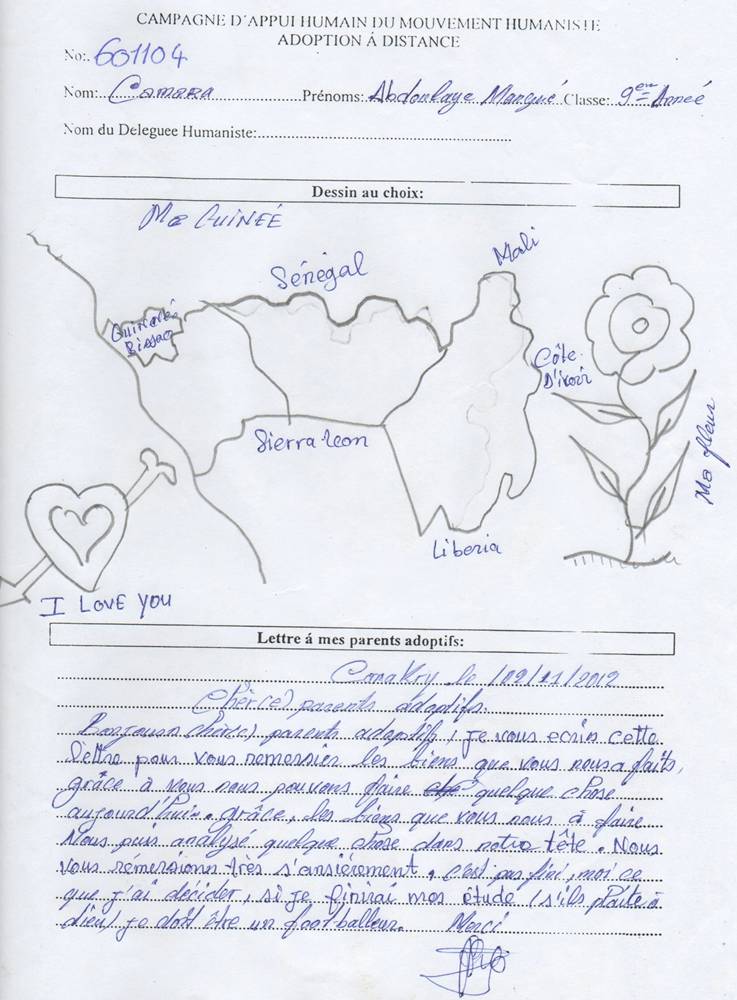 CAMPAGNE D'APPUI HUMAIN DU MOUVEMENT HUMANISTE
ADOPTION Á DISTANCE
No: 601104
Nom: Camara Prénoms: Abdoulaye Mangué Classe: 9ème Anneé
Nom du Deleguee Humaniste:
Dessin au choix:
Ma GUINEÉ
Sénégal
Mali
Guineé
Bissao
Côte
D'ivoir
Sierra leon
Ma fleur
Liberia
I LOVE YOU
Lettre á mes parents adoptifs:
Conakry le /09/11/2012
Chèr(e) parents adoptifs
Bonjour chèr(e) parents adoptifs, je vous ecris cette
lettre pour vous remersier les biens que vous nous a faits,
grâce à vous nous pouvons faire quelque chose
aujourd'hui. grâce, les biens que vous nous à faire
Nous puis analysé quelque chose dans notre tête. Nous
vous rémersionn très s'ansièrement, c'est pas fini, moi ce
que j'ai décider, si je finirai mes étude (s'ils plaîte à
dieu) je doit être un foot balleur. Merci